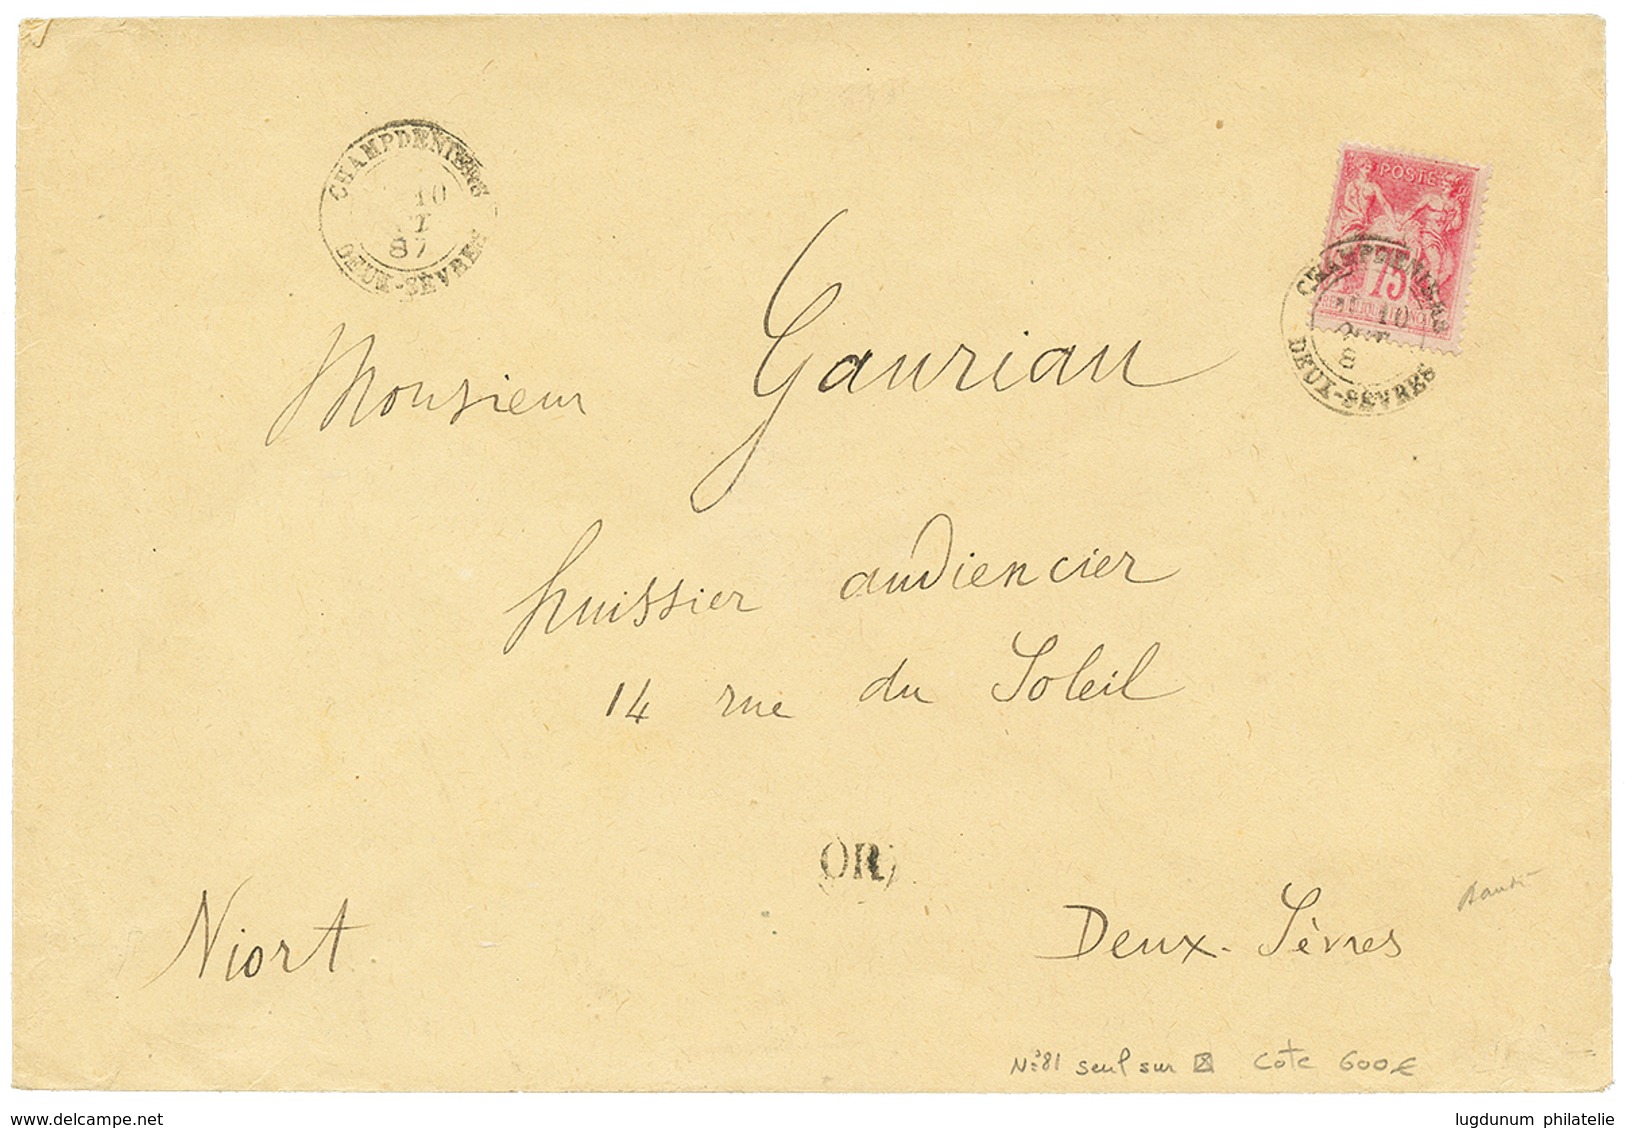 CHAMPDENIERS
10
87
DEUX-SÈVRES
POSTE
75
CHAMPDENIERS
10
8
DEUX-SÈVRES
Monsieur Gauriau
huissier audiencier
14 rue du Soleil
(OR)
Niort Deux-Sèvres
N°81 seul sur cote 600€
www.delcampe.net
lugdunum philatelie